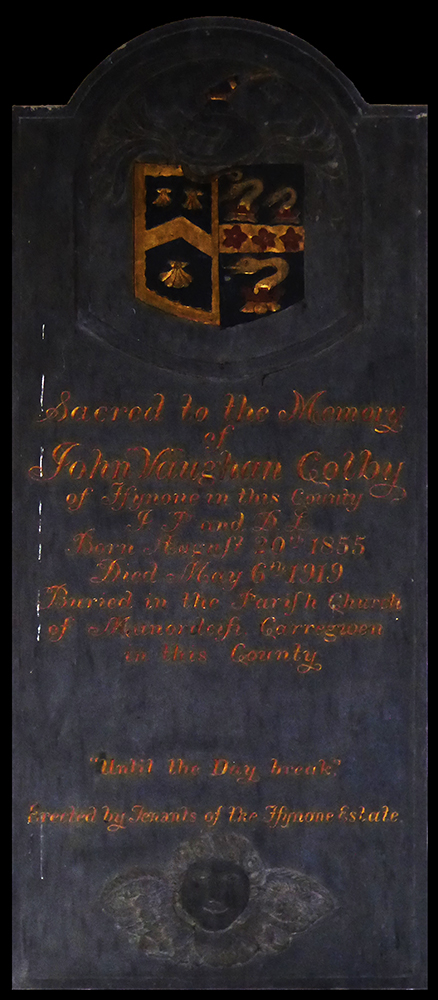 Sacred to the Memory
of
John Vaughan Colby
of Ffynone in this County
J P and D L
Born August 20th 1855
Died May 6th 1919
Buried in the Parish Church
of Manordeifi Carregwen
in this County
"Until the Day break"
Erected by Tenants of the Ffynone Estate.